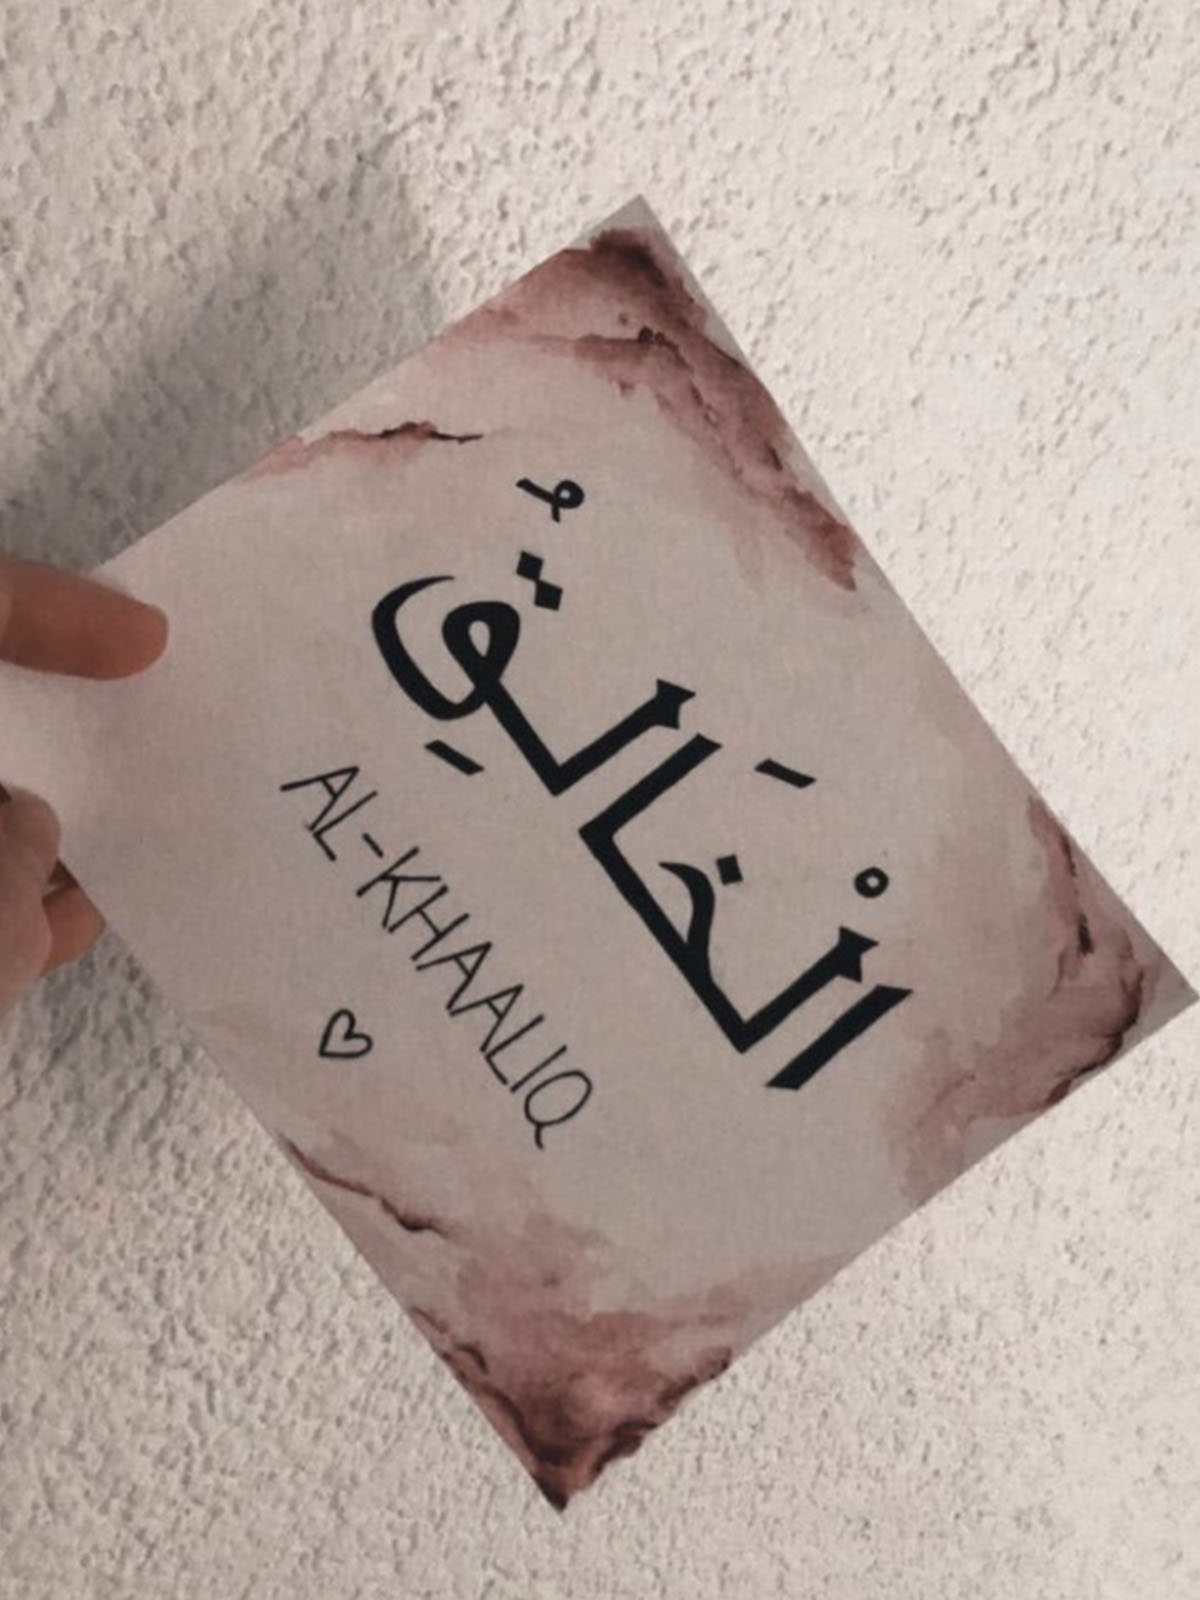 الْخَالِقُ
AL-KHAALIQ